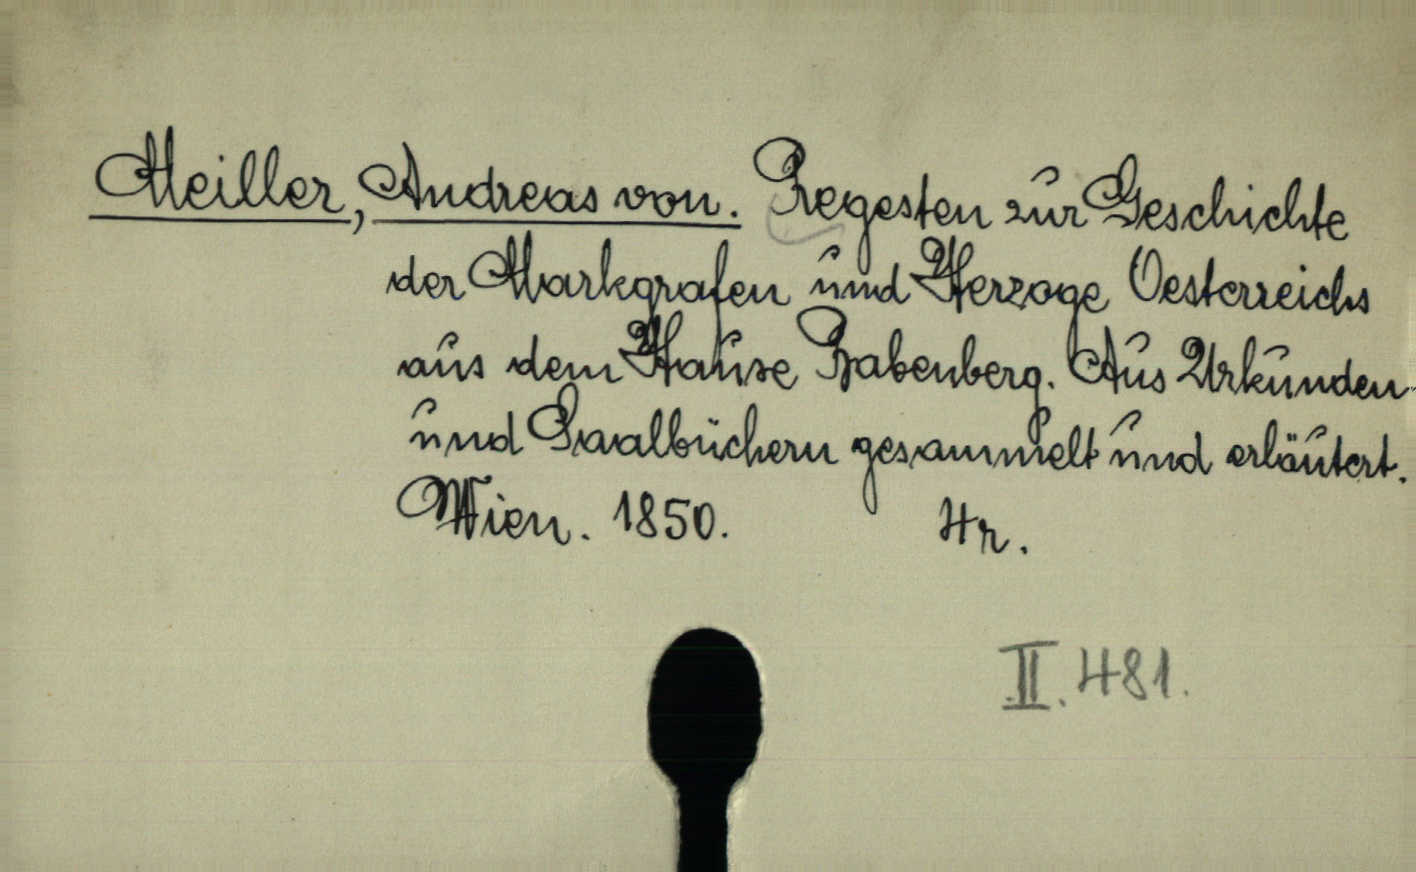 Meiller, Andreas von. Regesten zur Geschichte
der Markgrafen und Herzoge Oesterreichs
aus dem Hause Babenberg. Aus Urkunden
und Saalbüchern gesammelt und erläutert.
Wien. 1850. 4r.
II. 481.